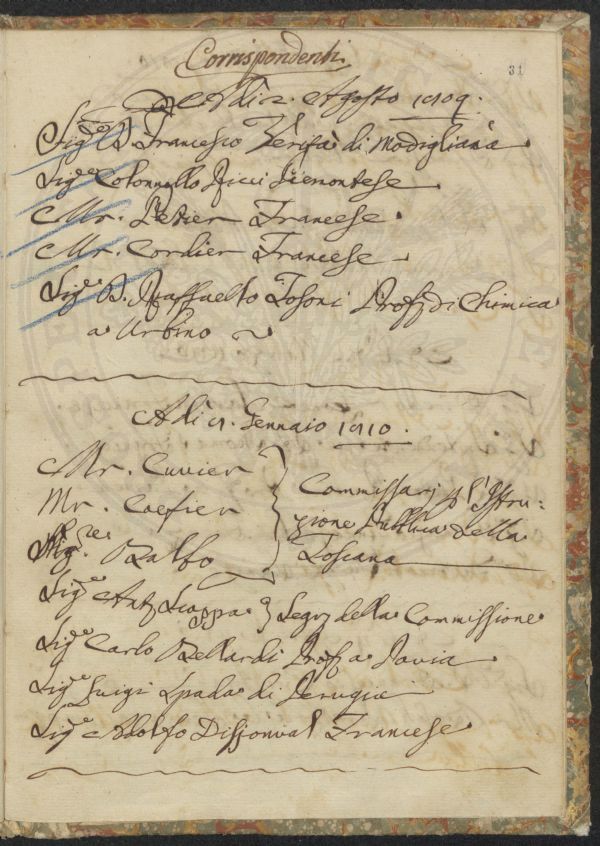 Corrispondenti.
31
Adi 2. Agosto 1809.
Sig.e D. Francesco Verità di Modigliana
Sig.e Colonnello Ricci Piemontese
Mr. Petier Francese.
Mr. Cordier Francese
Sig.e D. Raffaello Tosoni Prof. di Chimica
a Urbino
Adi 8. Gennaio 1810.
Mr. Cuvier
Mr. Coefier
Balbo
Commissarj p l'Istru:
zione Pubblica della
Toscana
Sig.e Ant. Scoppa Seg. della Commissione
Sig.e Carlo Bellardi Prof. a Pavia
Sig.e Luigi Spada di Perugia
Sig.e Adolfo Disjonval Francese